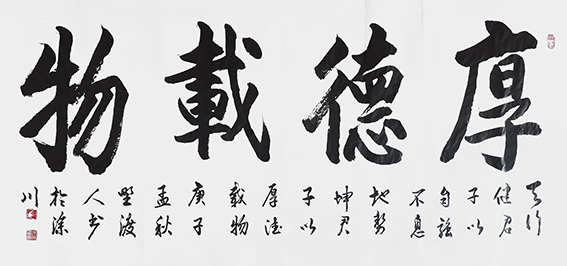 厚德載物
天行
健君
子以
自强
不息
地势
坤君
子以
厚德
载物
庚子
孟秋
野渡
人书
於
川